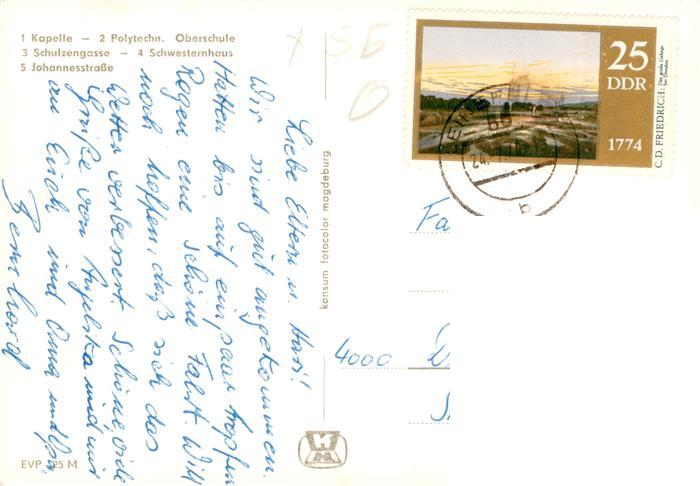 1 Kapelle — 2 Polytechn. Oberschule
3 Schulzengasse — 4 Schwesternhaus
5 Johannesstraße
Liebe Eltern u. Hasi!
Wir sind gut angekommen.
Hatten bis auf ein paar Tropfen
Regen eine schöne Fahrt. Will
noch hoffen, daß sich das
Wetter verbessert. Schöne viele
Grüße von und mir
an Euch und Oma und
konsum fotocolor magdeburg
EVP -,25 M
25
DDR
1774
C. D. FRIEDRICH: Das große Gehege
bei Dresden
Fa
4000